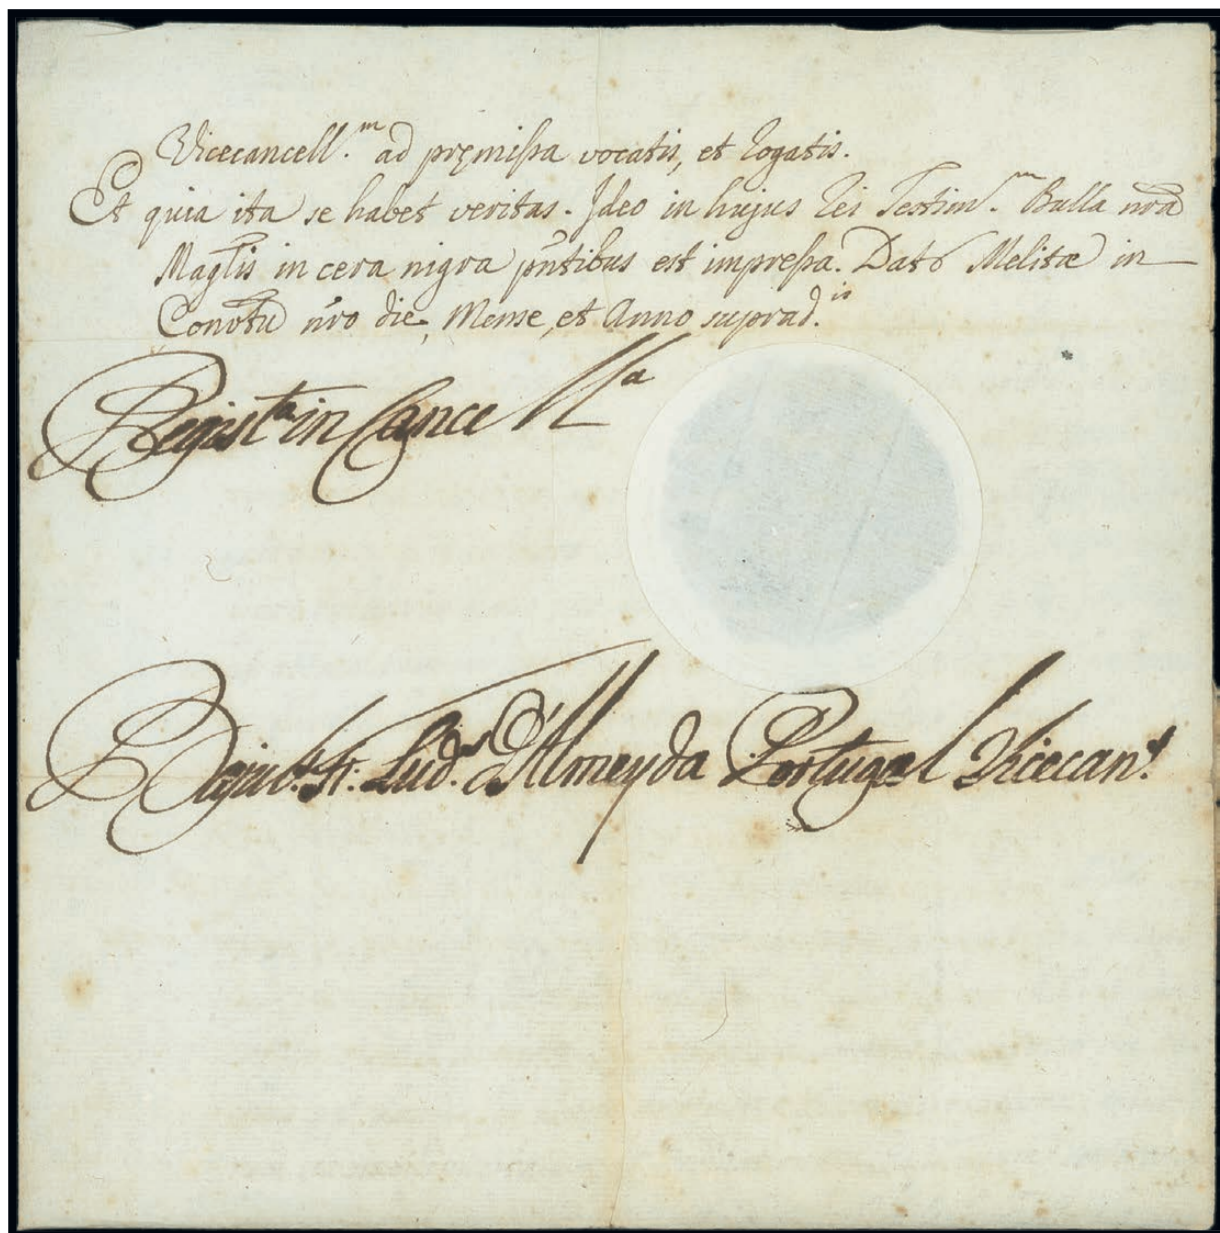 Vicecancell.m ad pręmissa vocatis, et rogatis.
Et quia ita se habet veritas. Ideo in hujus rei Testim.m Bulla nrã
Maglis in cera nigra pñtibus est impressa. Dat. Melitæ in
Convtu nro die, Mense, et Anno suprad.is
Regist.ta in Cancell.a
Bajul. Fr. Lud.us d'Almeyda Portugal Vicecan.s